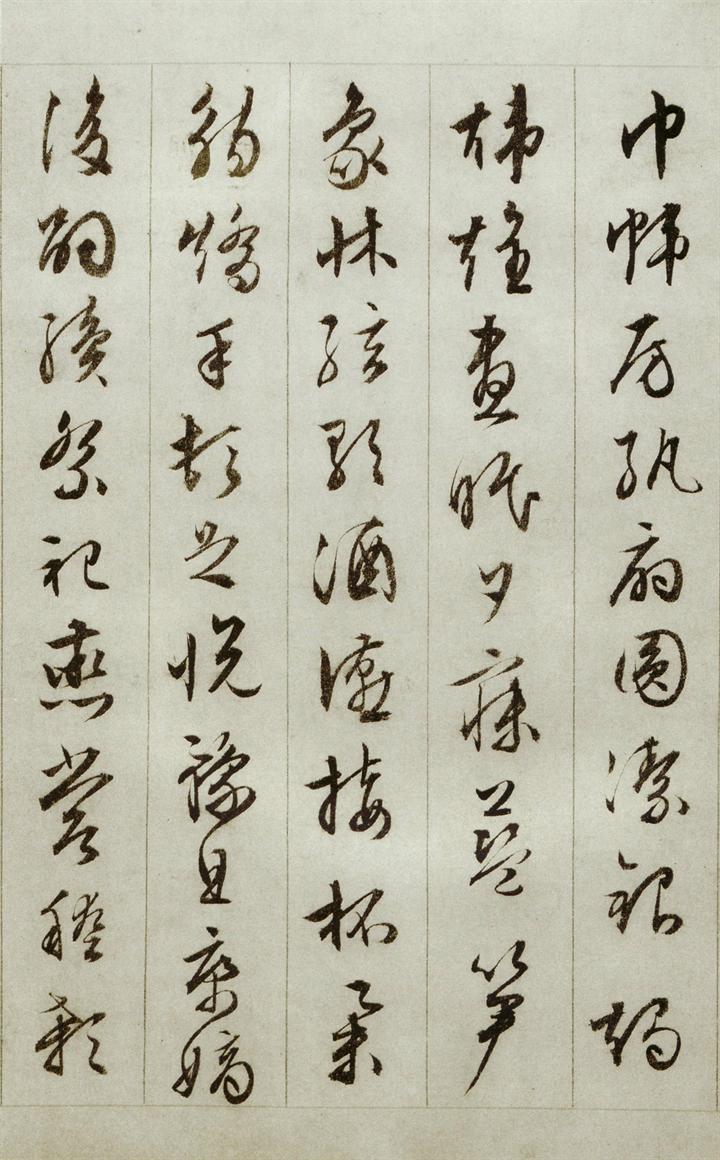 巾幃房紈扇圓潔銀燭
煒煌晝眠夕寐藍笋
象牀絃歌酒讌接杯舉
觴矯手頓足悅豫且康嫡
後嗣續祭祀蒸嘗稽顙